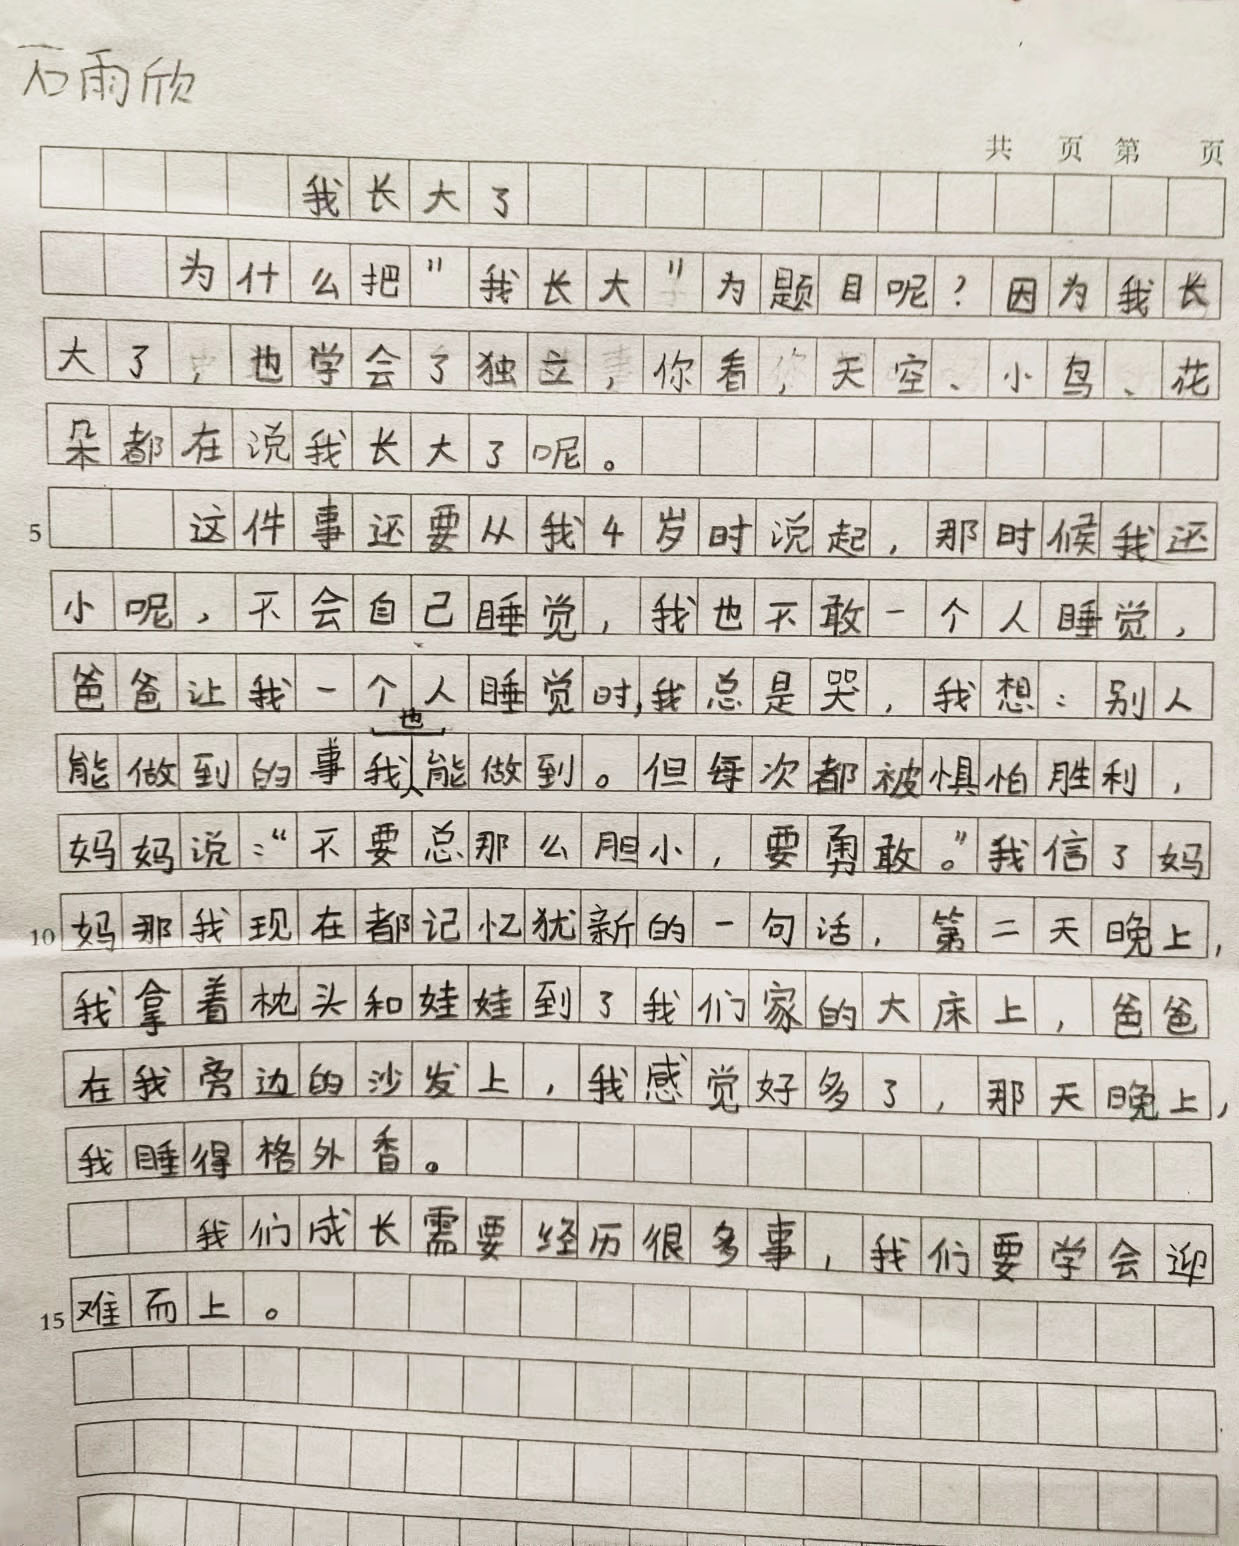 石雨欣
共 页 第 页
我长大了
为什么把"我长大"为题目呢?因为我长
大了,也学会了独立,你看,天空、小鸟、花
朵都在说我长大了呢。
5 这件事还要从我4岁时说起,那时候我还
小呢,不会自己睡觉,我也不敢一个人睡觉,
爸爸让我一个人睡觉时,我总是哭,我想:别人
能做到的事我也能做到。但每次都被惧怕胜利,
妈妈说:“不要总那么胆小,要勇敢。”我信了妈
10 妈那我现在都记忆犹新的一句话,第二天晚上,
我拿着枕头和娃娃到了我们家的大床上,爸爸
在我旁边的沙发上,我感觉好多了,那天晚上,
我睡得格外香。
我们成长需要经历很多事,我们要学会迎
15 难而上。